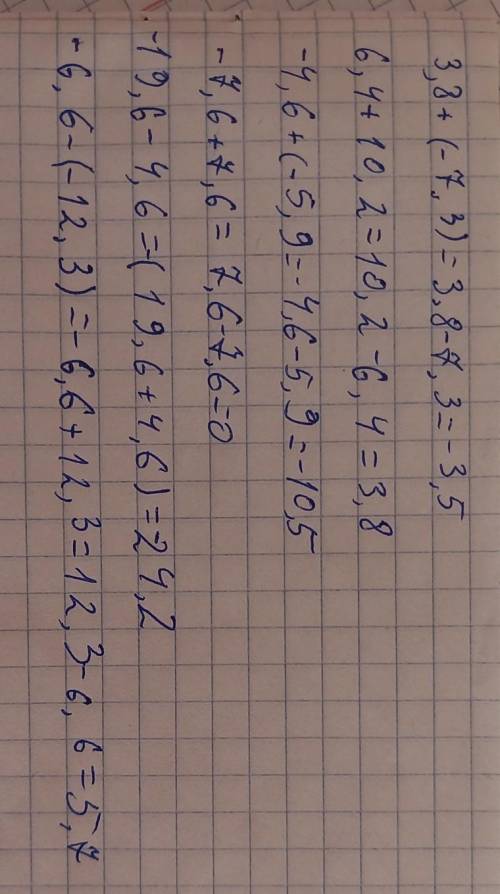 3,8+(-7,3)=3,8-7,3=-3,5
6,4+10,2=10,2-6,4=3,8
-4,6+(-5,9=-4,6-5,9=-10,5
-7,6+7,6=7,6-7,6=0
-19,6-4,6=-(19,6+4,6)=24,2
-6,6-(-12,3)=-6,6+12,3=12,3-6,6=5,7